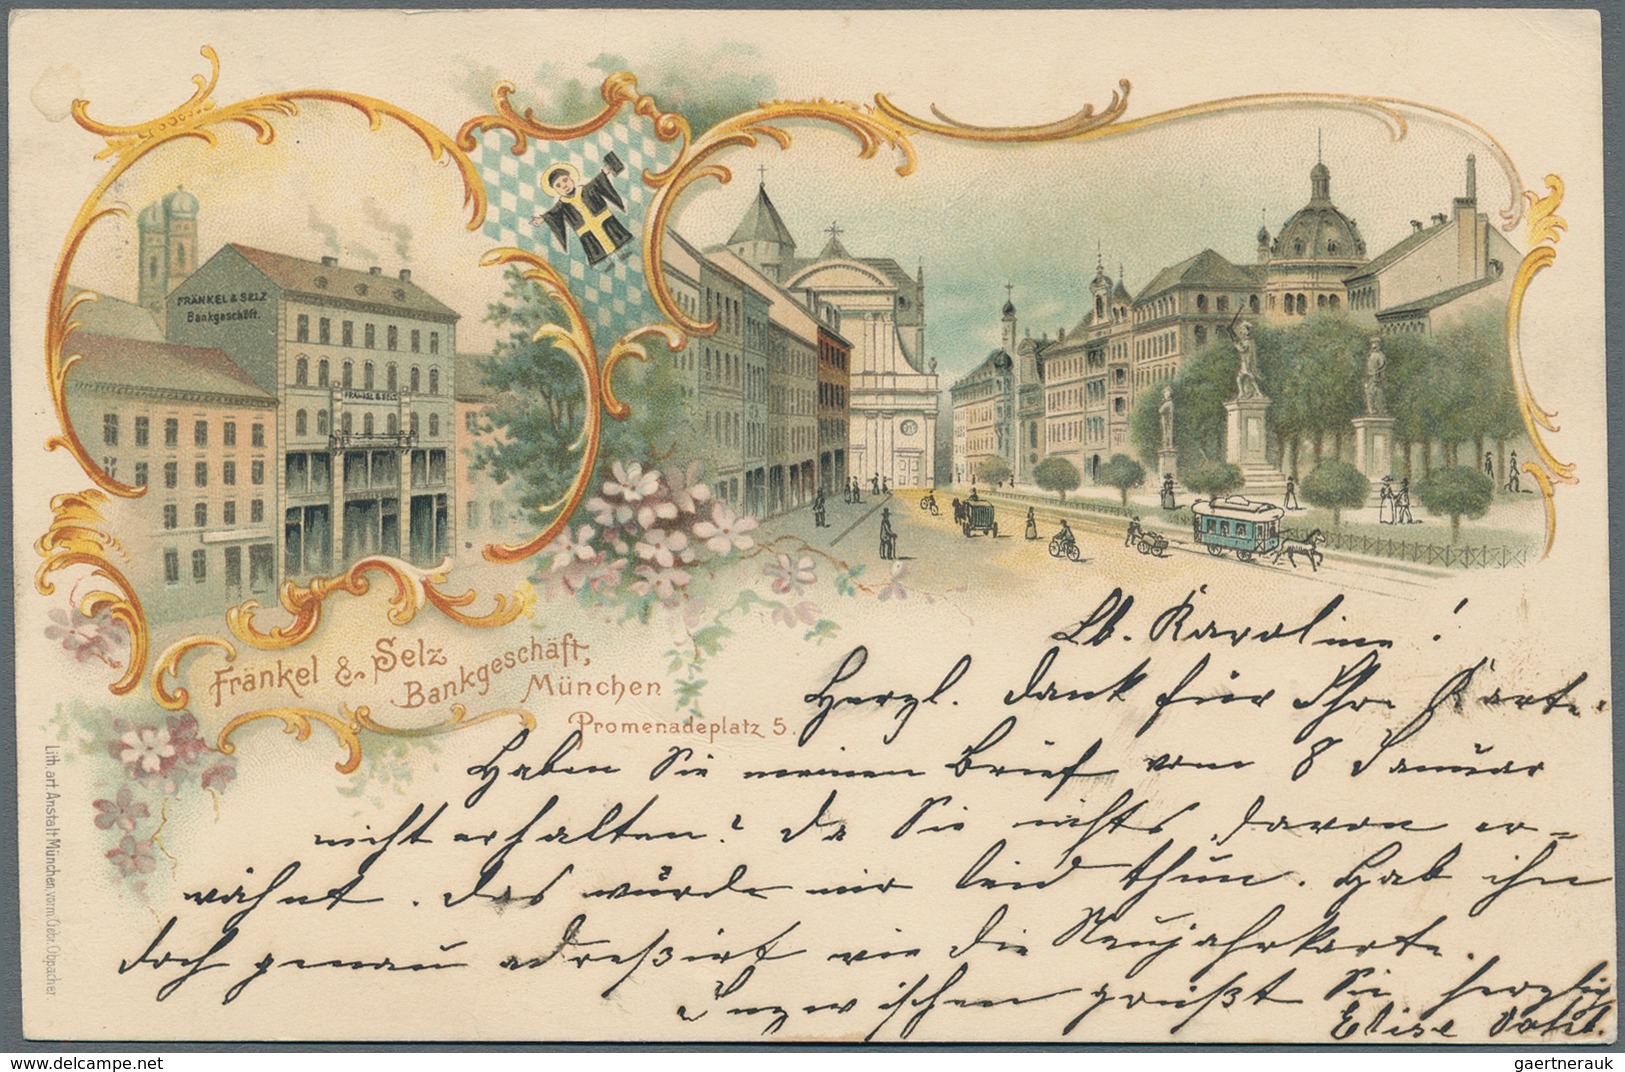 FRÄNKEL & SELZ
Bankgeschäft.
FRÄNKEL & SELZ
Fränkel & Selz
Bankgeschäft,
München
Promenadeplatz 5.
Lith. art. Anstalt München, vorm. Gebr. Obpacher
Lb. Karoline!
Herzl. Dank für Ihre Karte.
Haben Sie meinen Brief vom 8 Januar
nicht erhalten? Da Sie nichts davon er=
wähnt. Das würde mir leid thun. Hab ihn
doch genau adreßirt wie die Neujahrkarte.
Inzwischen grüßt Sie herzlich
Elise
delcampe.net
gaertnerauk